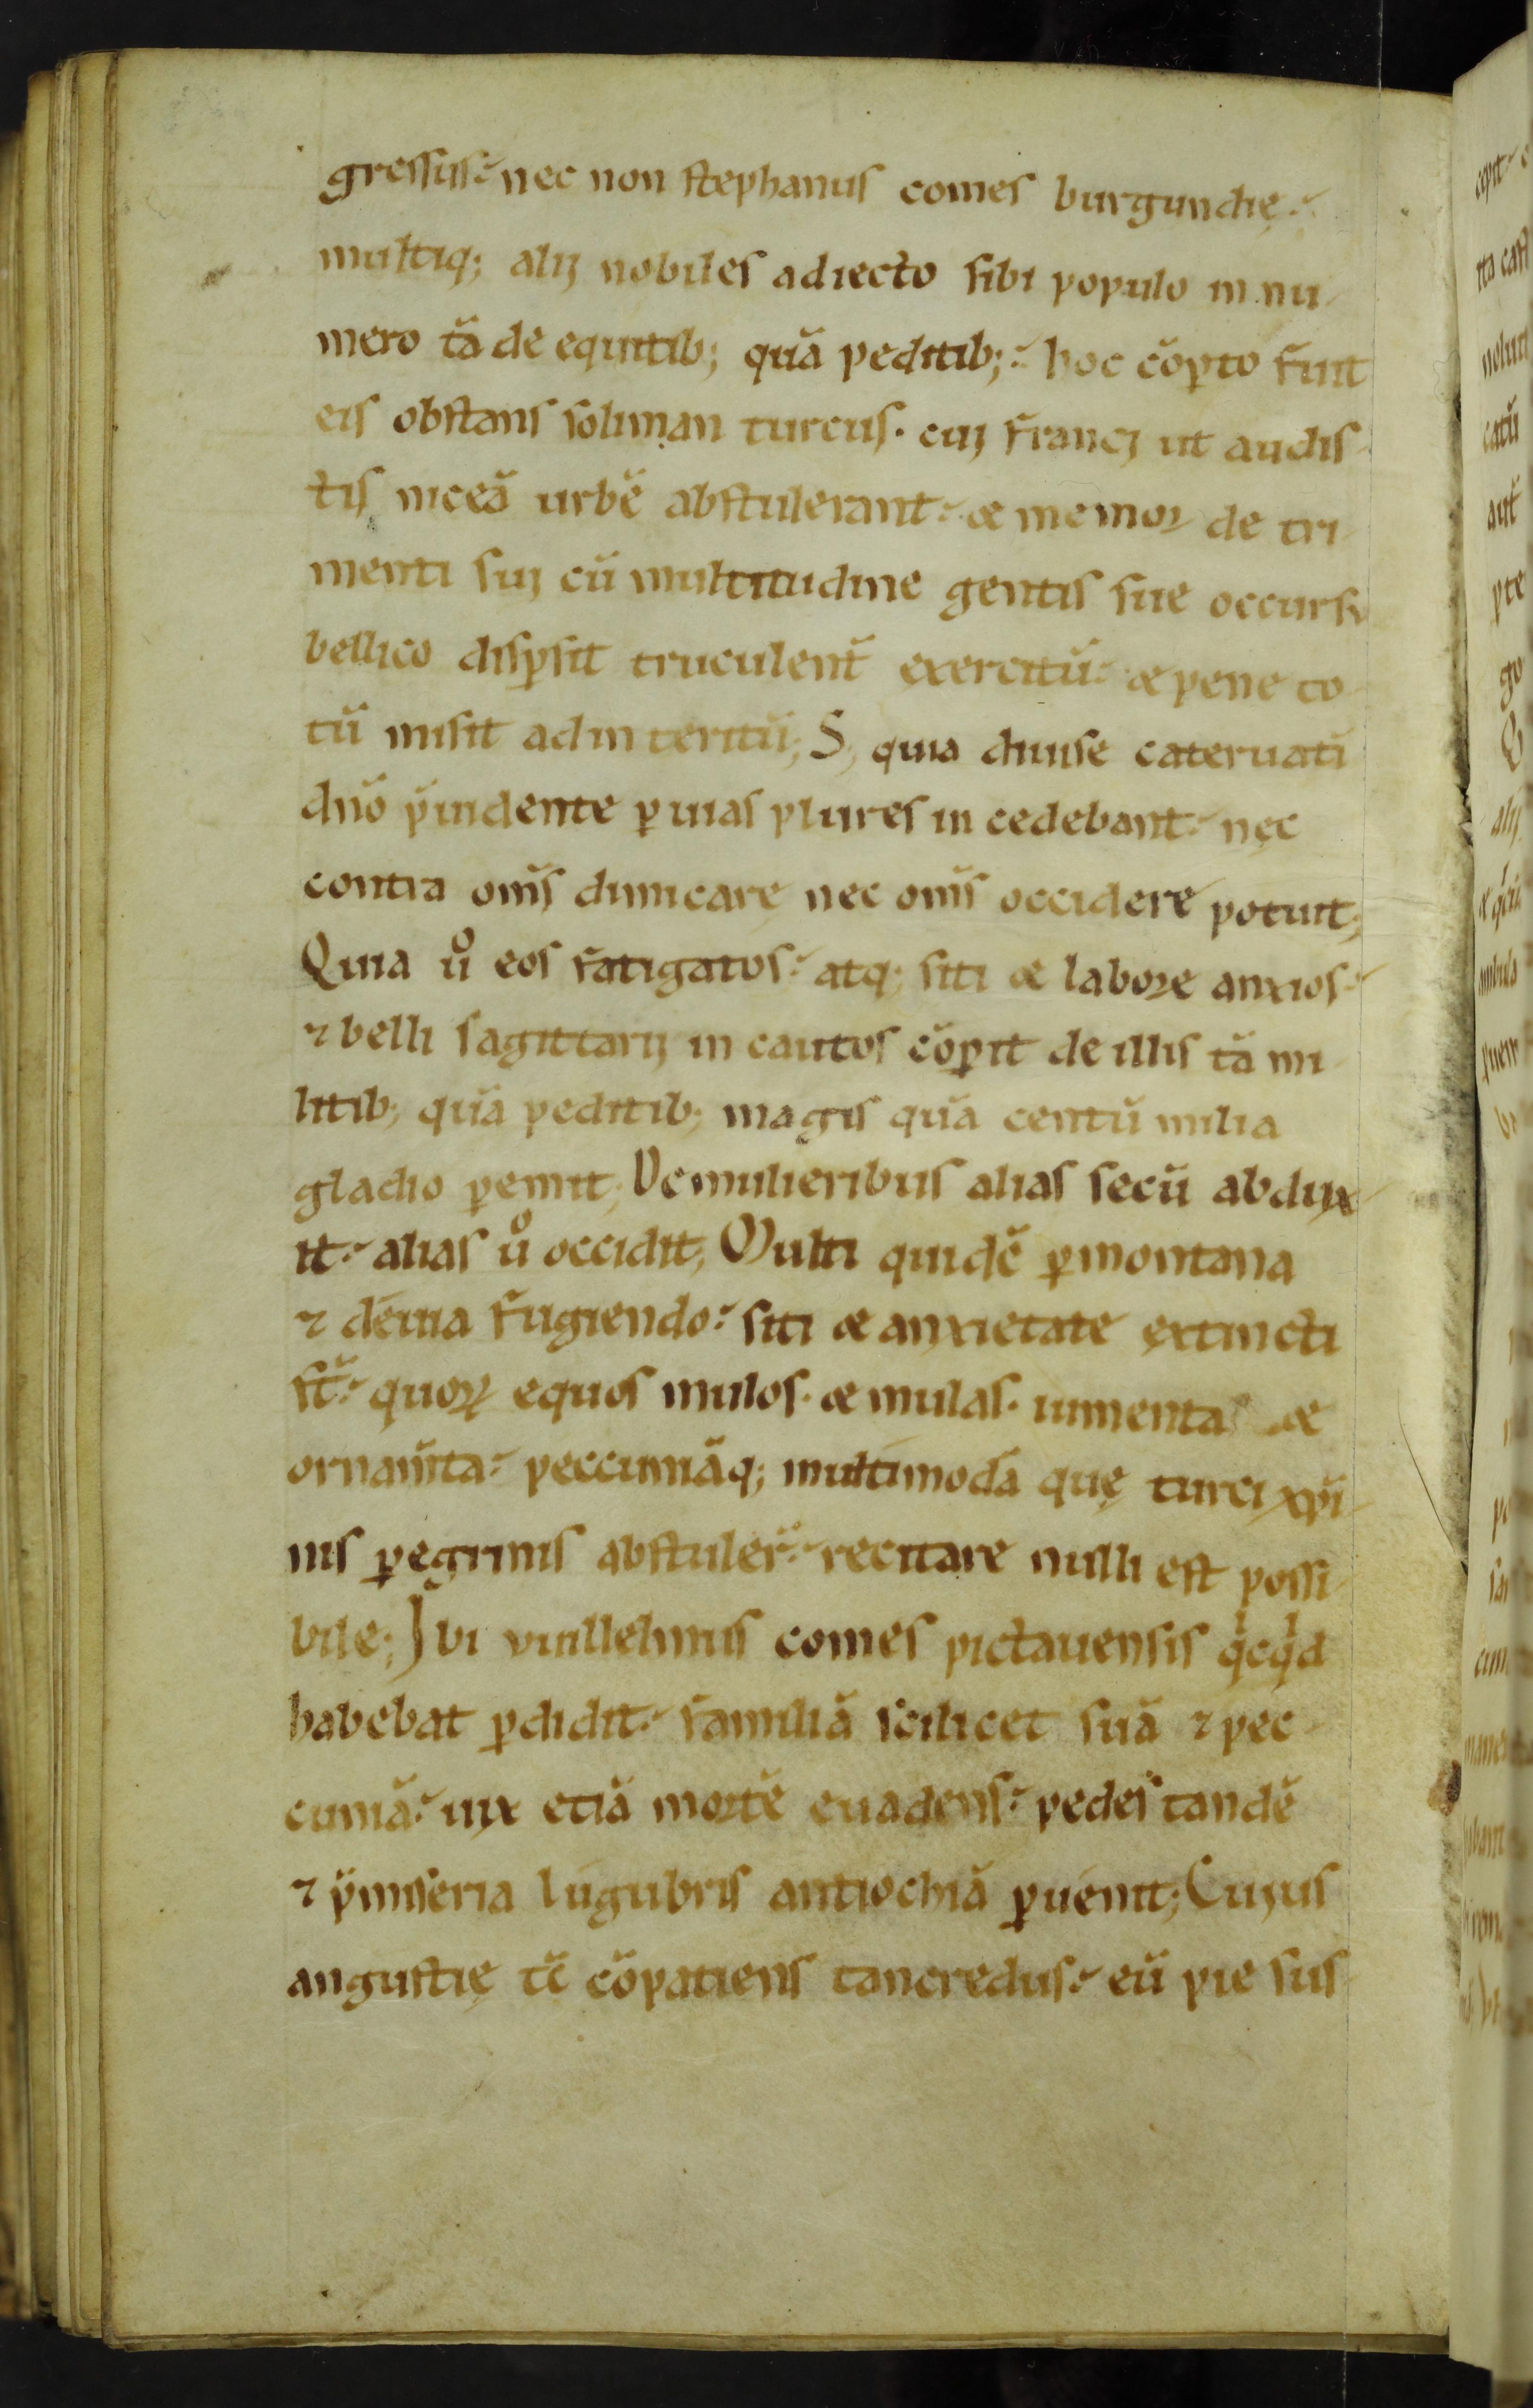 gressus. nec non stephanus comes burgundię.
multiq; alij nobiles adiecto sibi populo in nu
mero tā de equitib; quā peditib;. hoc cōp̄to fuit
eis obstans soliman turcus. cuj francj ut audis
tis niceā urbē abstulerant. & memor de tri
menti suj cū multitudine gentis sue occursu
bellico disp̄sit truculent̄ exercitū. & pene to
tū misit ad in teritū; S; quia diuise cateruatī
dn̄o p̄uidente p̄ uias plures in cedebant. nec
contra om̄s dimicare nec om̄s occidere potuit;
Quia uͦ eos fatigatos. atq; siti & labore anxios.
⁊ belli sagittarij in cautos cōp̄it de illis tā mi
litib; quā peditib; magis quā centū milia
gladio p̄emit; De mulieribus alias secū abdux
it. alias uͦ occidit; Multi quidē p̄ montana
⁊ deuia fugiendo. siti & anxietate extincti
st̄. quoꝝ equos mulos. & mulas. iumenta &
ornam̄ta. peccuniāq; multimodā quę turci xp̄i
nis p̄egrinis abstuler̄. recitare nulli est possi
bile; Ibi vuillelmus comes pictauensis qͥcqͥd
habebat p̄didit. familiā scilicet suā ⁊ pec
cuniā. uix etiā mortē euadens. pedes tandē
⁊ p̄ miseria lugubris antiochiā p̄uenit; Cujus
angustię tc̄ cōpatiens tancredus. eū pie sus